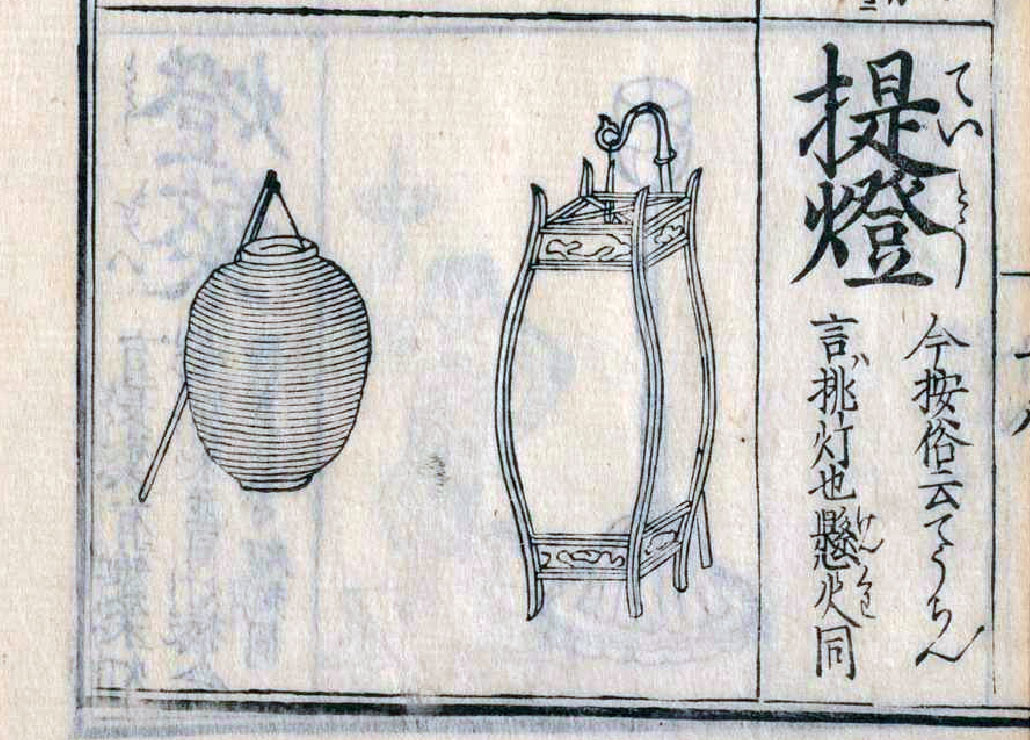 提燈
ていとう
今按俗云てうちん
言挑灯也懸火同
けんくわ